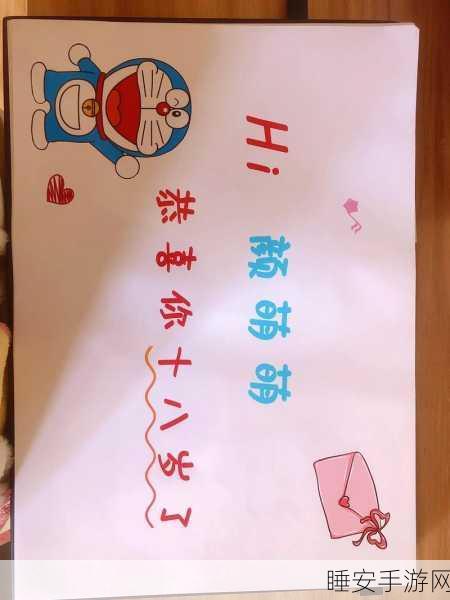 Hi 颜萌萌
恭喜你十八岁了
睡安手游网